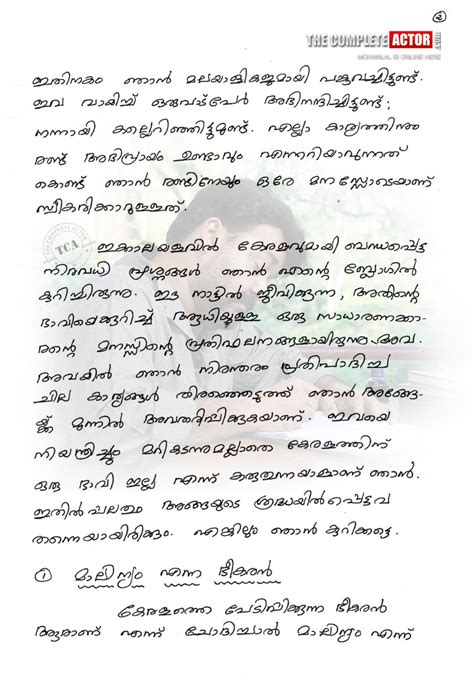 2
THE COMPLETE ACTOR .COM
MOHANLAL IS ONLINE HERE
ഇതിനകം ഞാൻ മലയാളികളുമായി പങ്കുവച്ചിട്ടുണ്ട്.
ഇവ വായിച്ച് ഒരുപാട്പേർ അഭിനന്ദിച്ചിട്ടുണ്ട്;
നന്നായി കല്ലെറിഞ്ഞിട്ടുമുണ്ട്. എല്ലാ കാര്യത്തിനും
രണ്ട് അഭിപ്രായം ഉണ്ടാവും എന്നറിയാവുന്നത്
കൊണ്ട് ഞാൻ രണ്ടിനേയും ഒരേ മനസ്സോടെയാണ്
സ്വീകരിക്കാറുള്ളത്.
TCA
ഇക്കാലയളവിൽ കേരളവുമായി ബന്ധപ്പെട്ട
നിരവധി പ്രശ്നങ്ങൾ ഞാൻ എന്റെ ബ്ലോഗിൽ
കുറിച്ചിരുന്നു. ഈ നാട്ടിൽ ജീവിക്കുന്ന, അതിന്റെ
ഭാവിയെക്കുറിച്ച് ആധിയുള്ള ഒരു സാധാരണക്കാ-
രന്റെ മനസ്സിന്റെ പ്രതിഫലനങ്ങളായിരുന്നു അവ.
അവയിൽ ഞാൻ നിരന്തരം പ്രതിപാദിച്ച
ചില കാര്യങ്ങൾ തിരഞ്ഞെടുത്ത് ഞാൻ അങ്ങേ-
യ്ക്ക് മുന്നിൽ അവതരിപ്പിക്കുകയാണ്. ഇവയെ
നിയന്ത്രിച്ചും മറികടന്നുമല്ലാതെ കേരളത്തിന്
ഒരു ഭാവി ഇല്ല എന്ന് കരുതുന്നയാളാണ് ഞാൻ.
ഇതിൽ പലതും അങ്ങയുടെ ശ്രദ്ധയിൽപ്പെട്ടവ
തന്നെയായിരിക്കും. എങ്കിലും ഞാൻ കുറിക്കട്ടെ.
1 മാലിന്യം എന്ന ഭീകരൻ
കേരളത്തെ പേടിപ്പിക്കുന്ന ഭീകരൻ
ആരാണ് എന്ന് ചോദിച്ചാൽ മാലിന്യം എന്ന്